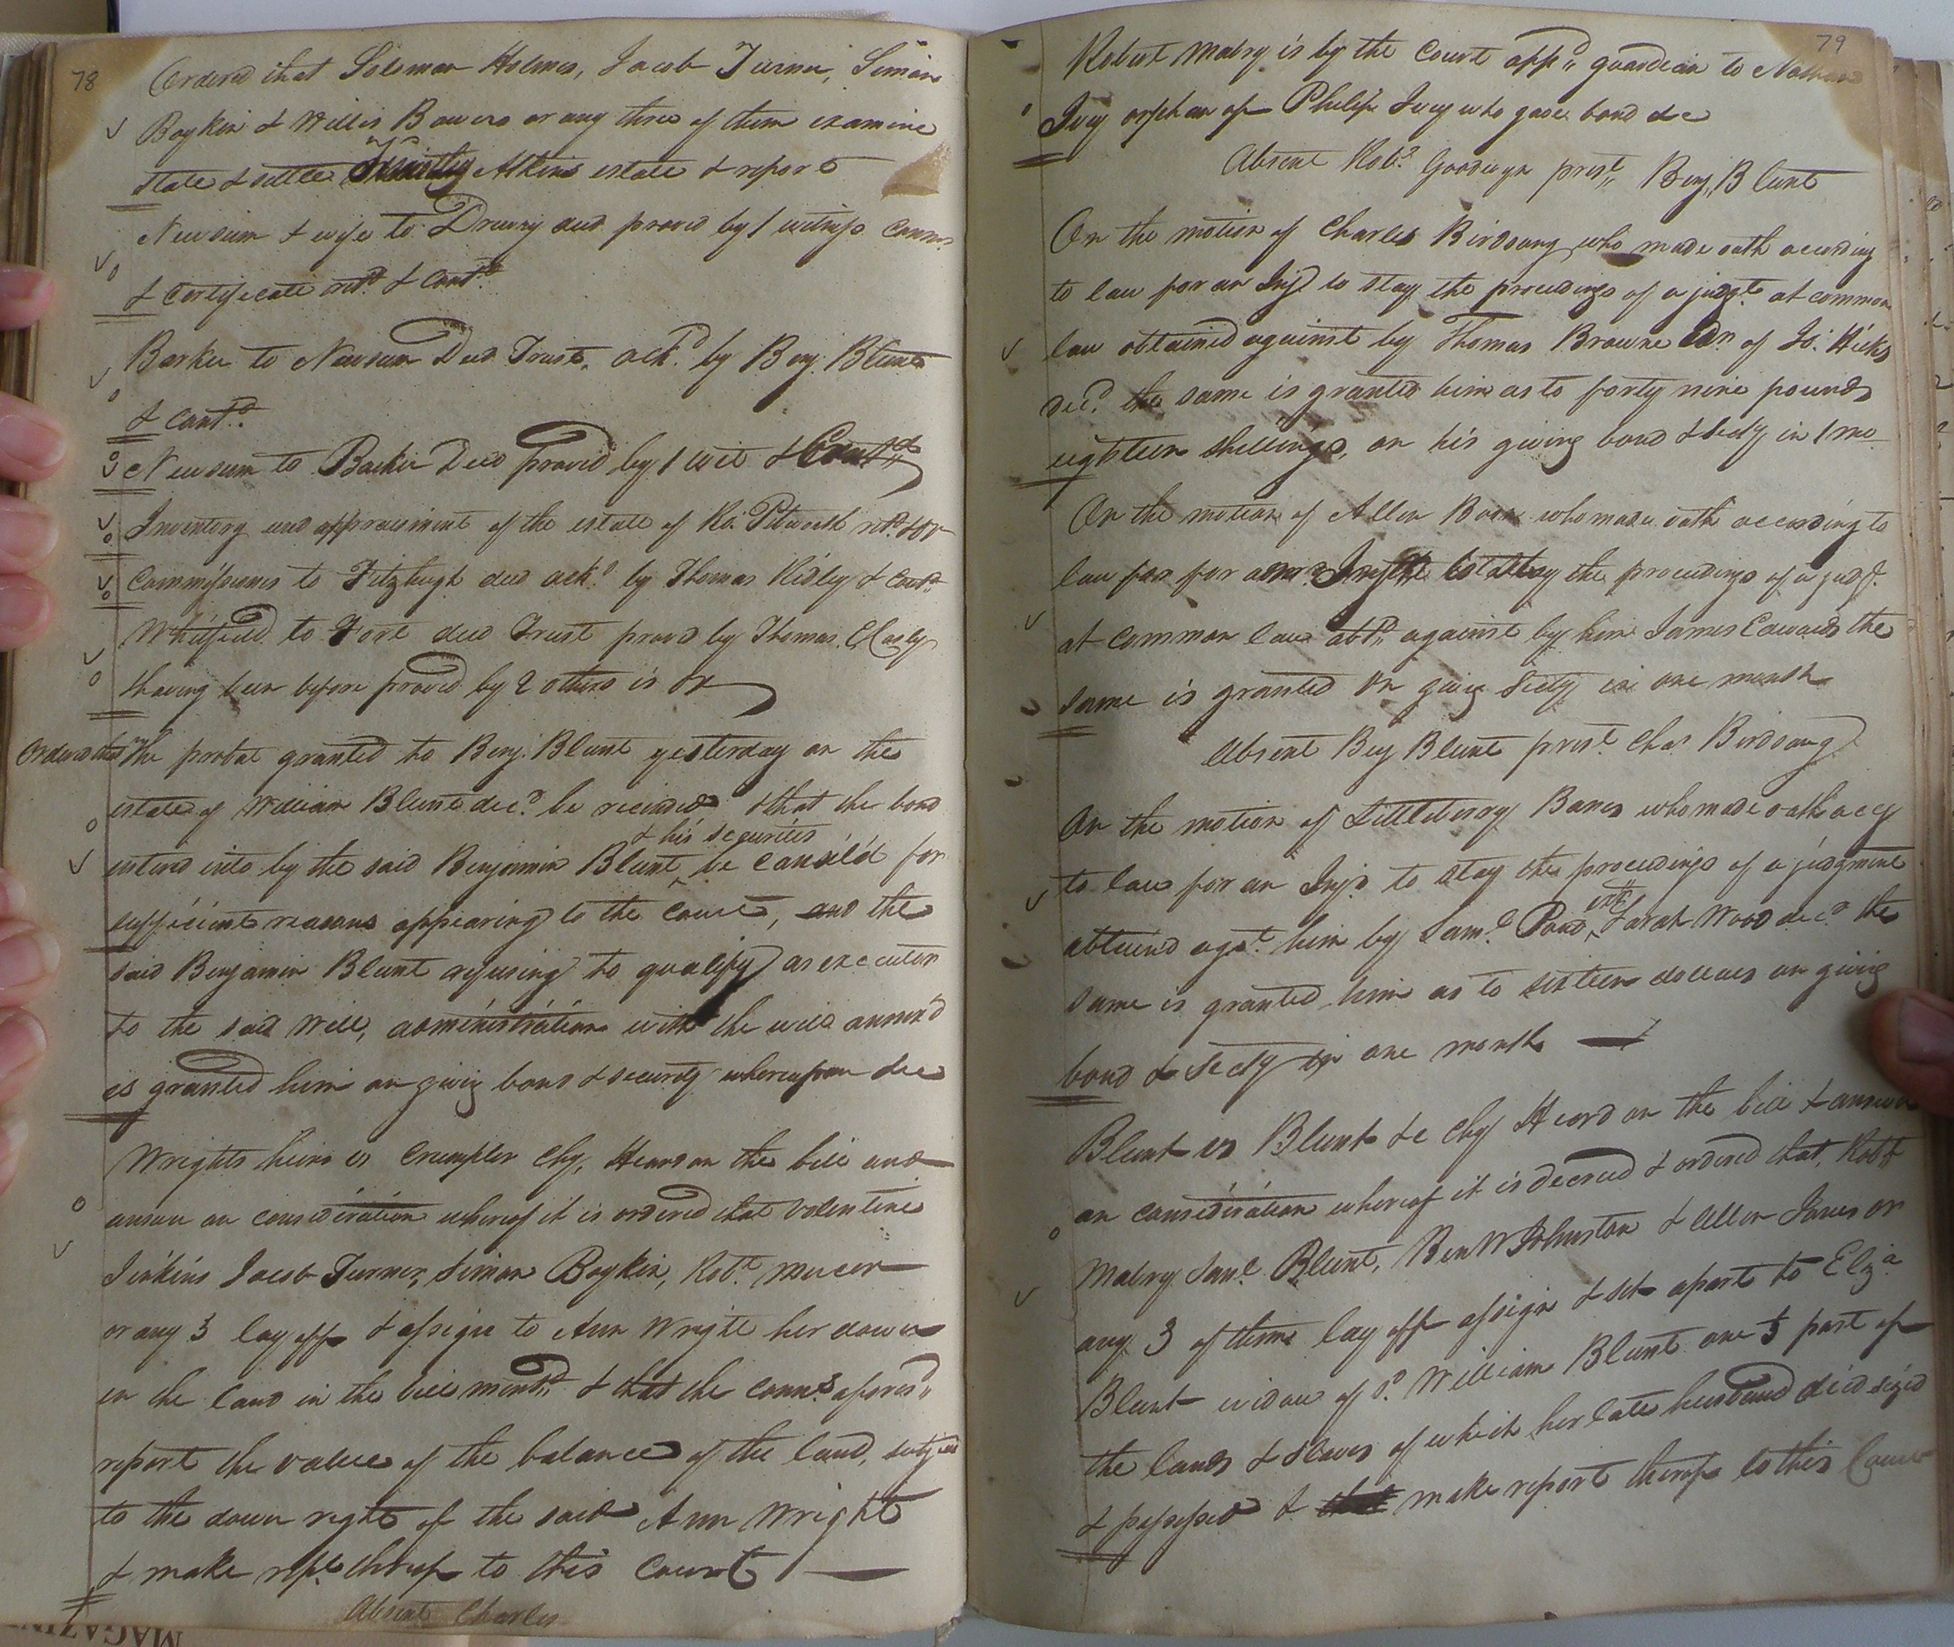 78
Ordered that Solomon Holmes, Jacob Turner, Simon
Boykin & Willis Bowers or any three of them examine
state & settle Atkins estate & report
Newsum & wife to Drewry deed proved by 1 witness
& certificate retd & contd
Barker to Newsum Deed Trust, ackd by Benj. Blunt
& contd.
Newsum to Barker Deed proved by 1 wit & Contd
Inventory and appraisement of the estate of Ro. retd & or
Commissioners to Fitzhugh deed ackd by Thomas Ridley & contd
Whitfield to Fort deed Trust proved by Thomas
having been before proved by 2 others is or
Ordered that the probat granted to Benj. Blunt yesterday on the
estate of William Blunt decd be recinded & that the bond
& his securities
enterd into by the said Benjamin Blunt ^ be cancel'd for
sufficient reasons appearing to the court, and the
said Benjamin Blunt refusing to qualify as executor
to the said will, administration with the will annex'd
is granted him on giving bond & security whereupon &c
Wrights heirs vs Crumpler Chy, Heard on the bill and
answr on consideration whereof it is ordered that Valentine
Jinkins Jacob Turner, Simon Boykin, Robt. Mercer
or any 3 lay off & assign to Ann Wright her dower
in the land in the bill mentd. & that the comrs aforesd.
report the value of the balance of the land, subject
to the dower right of the said Ann Wright
& make rept. thereof to this Court
Absent Charles
79
Robert Mabry is by the Court appd. guardian to Nathan
Ivey orphan of Philip Ivey who gave bond &c
Absent Robt. Goodwyn prest. Benj. Blunt
On the motion of Charles Birdsong who made oath according
to law for an Injn to stay the proceedings of a judgt. at common
law obtained against by Thomas Browne adr. of Jo: Hicks
decd. the same is granted him as to forty nine pounds
eighteen shillings, on his giving bond & secty in 1 mo
On the motion of Allen who made oath according to
law for for an to stay the proceedings of a judgt.
at common law obtd. against by him James Edwards the
same is granted on giving secty in one month
Absent Benj Blunt prest. Chas. Birdsong
On the motion of Littleberry Banes who made oath accg
to law for an Injn. to stay the proceedings of a judgment
obtained agst. him by Saml. Pond, ^ Sarah Wood decd. the
same is granted him as to sixteen dollars on giving
bond & secty in one month
Blunt vs Blunt &c Chy Heard on the bill & answer
on consideration whereof it is decreed & ordered that, Robt.
Mabry Saml. Blunt, Ben W Johnston & Allen Jones or
any 3 of them lay off assign & set apart to Eliza
Blunt widow of sd. William Blunt one 1/3 part of
the lands & slaves of which her late husband died seized
& possessed & make report thereof to this Court